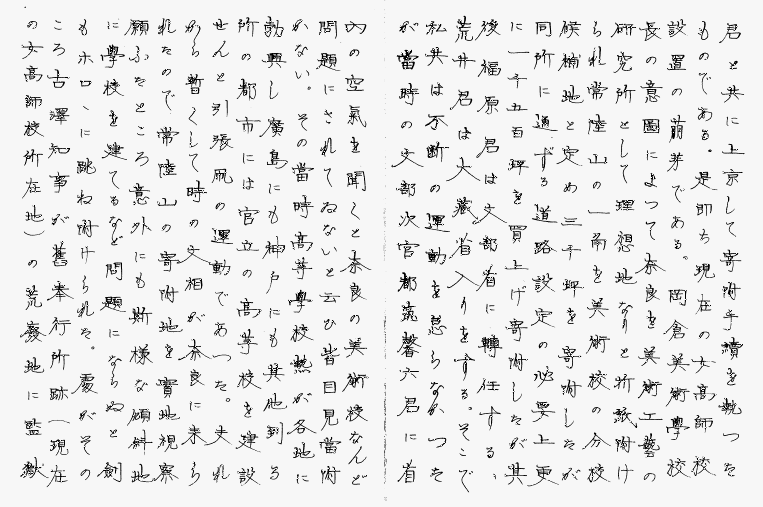 君と共に上京して寄附手續を執つた
ものである。是即ち現在の女高師校
設置の萠芽である。岡倉美術學校
長の意圖によつて奈良を美術工藝の
研究所として理想地なりと折紙附け
られ常陸山の一角を美術校の分校
候補地と定め三千坪を寄附したが
同所に通ずる道路設定の必要上更
に一千五百坪を買上げ寄附したが其
後福原君は文部省に轉任する、
荒井君は大藏省入りをする。そこで
私共は不断の運動を怠らなかつた
が當時の文部次官都筑馨六君に省
内の空氣を聞くと奈良の美術校なんど
問題にされてゐないと云ひ皆目見當附
かない。その當時高等學校熱が各地に
勃興し廣島にも神戸にも其他到る
所の都市には官立の高等校を建設
せんと引張凧の運動であつた。夫れ
から暫くして時の文相が奈良に来ら
れたので常陸山の寄附地を實地視察
願ふたところ意外にも斯様な傾斜地
に學校を建てるなど問題にならぬと創
もホロヽに跳ね附けられた。處がその
ころ古澤知事が舊奉行所跡(現在
の女高師校所在地)の荒廢地に監獄